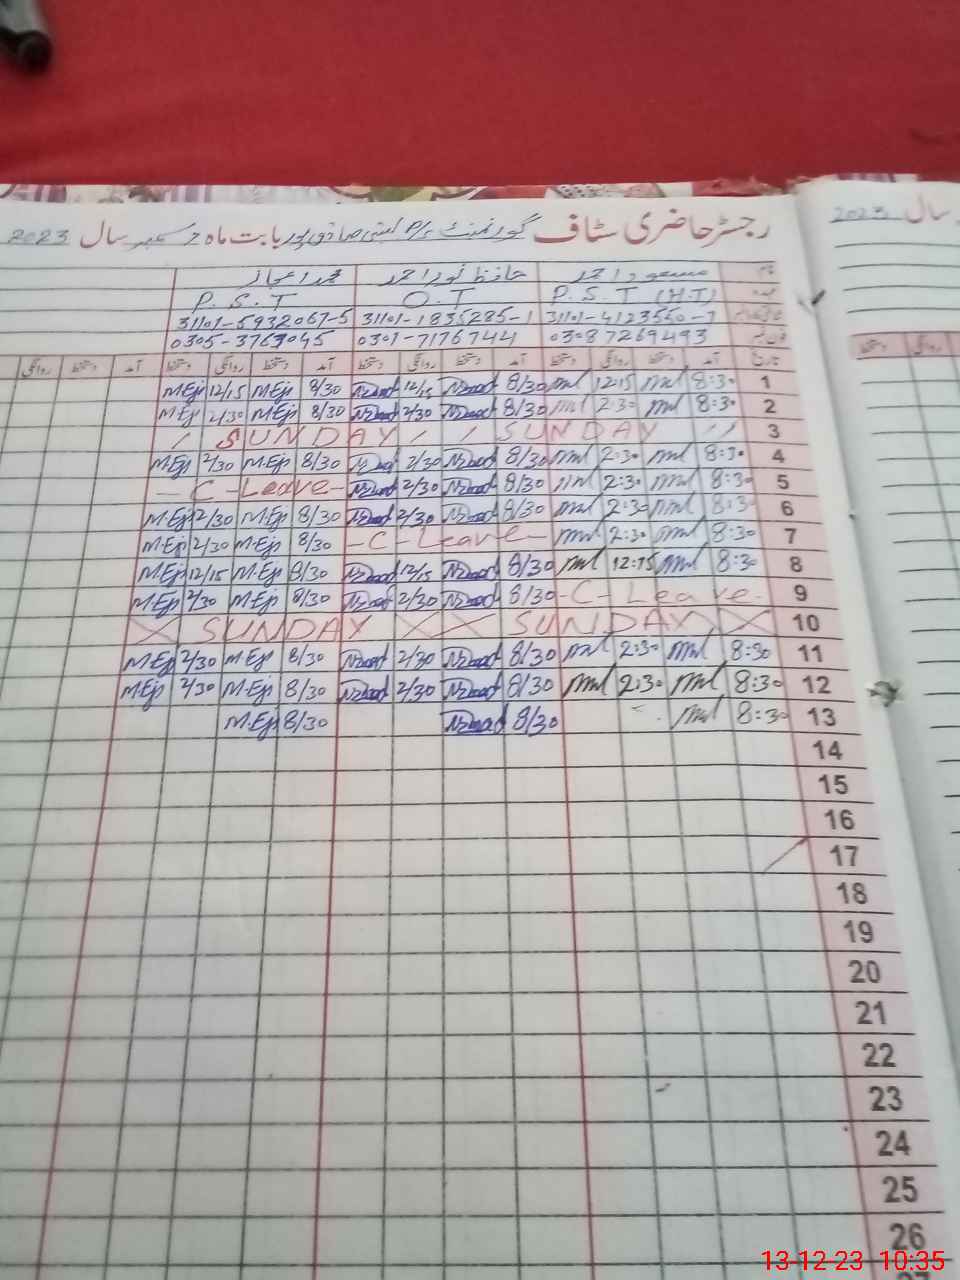 رجسٹر حاضری سٹاف گورنمنٹ P/S بستی صادق پور بابت ماہ دسمبر سال 2023
سال 2023
نام مسعود احمد حافظ نور احمد محمد اعجاز
عہدہ P.S.T (H.T) O.T P.S.T
31101-4123560-7 31101-1835285-1 31101-5932067-5
03087269493 0301-7176744 0305-3763045
تاریخ آمد دستخط روانگی دستخط آمد دستخط روانگی دستخط آمد دستخط روانگی دستخط آمد دستخط روانگی
1 8:30 12:15 8/30 12/15 8/30 M.Ejz 12/15 M.Ejz
2 8:30 2:30 8/30 2/30 8/30 M.Ejz 2/30 M.Ejz
3 SUNDAY SUNDAY
4 8:30 2:30 8/30 2/30 8/30 M.Ejz 2/30 M.Ejz
5 8:30 2:30 8/30 2/30 - C - Leave -
6 8:30 2:30 8/30 2/30 8/30 M.Ejz 2/30 M.Ejz
7 8:30 2:30 - C - Leave - 8/30 M.Ejz 2/30 M.Ejz
8 8:30 12:15 8/30 12/15 8/30 M.Ejz 12/15 M.Ejz
9 - C - Leave - 8/30 2/30 8/30 M.Ejz 2/30 M.Ejz
10 SUNDAY SUNDAY
11 8:30 2:30 8/30 2/30 8/30 M.Ejz 2/30 M.Ejz
12 8:30 2:30 8/30 2/30 8/30 M.Ejz 2/30 M.Ejz
13 8:30 8/30 8/30 M.Ejz
14
15
16
17
18
19
20
21
22
23
24
25
26
13-12-23 10:35